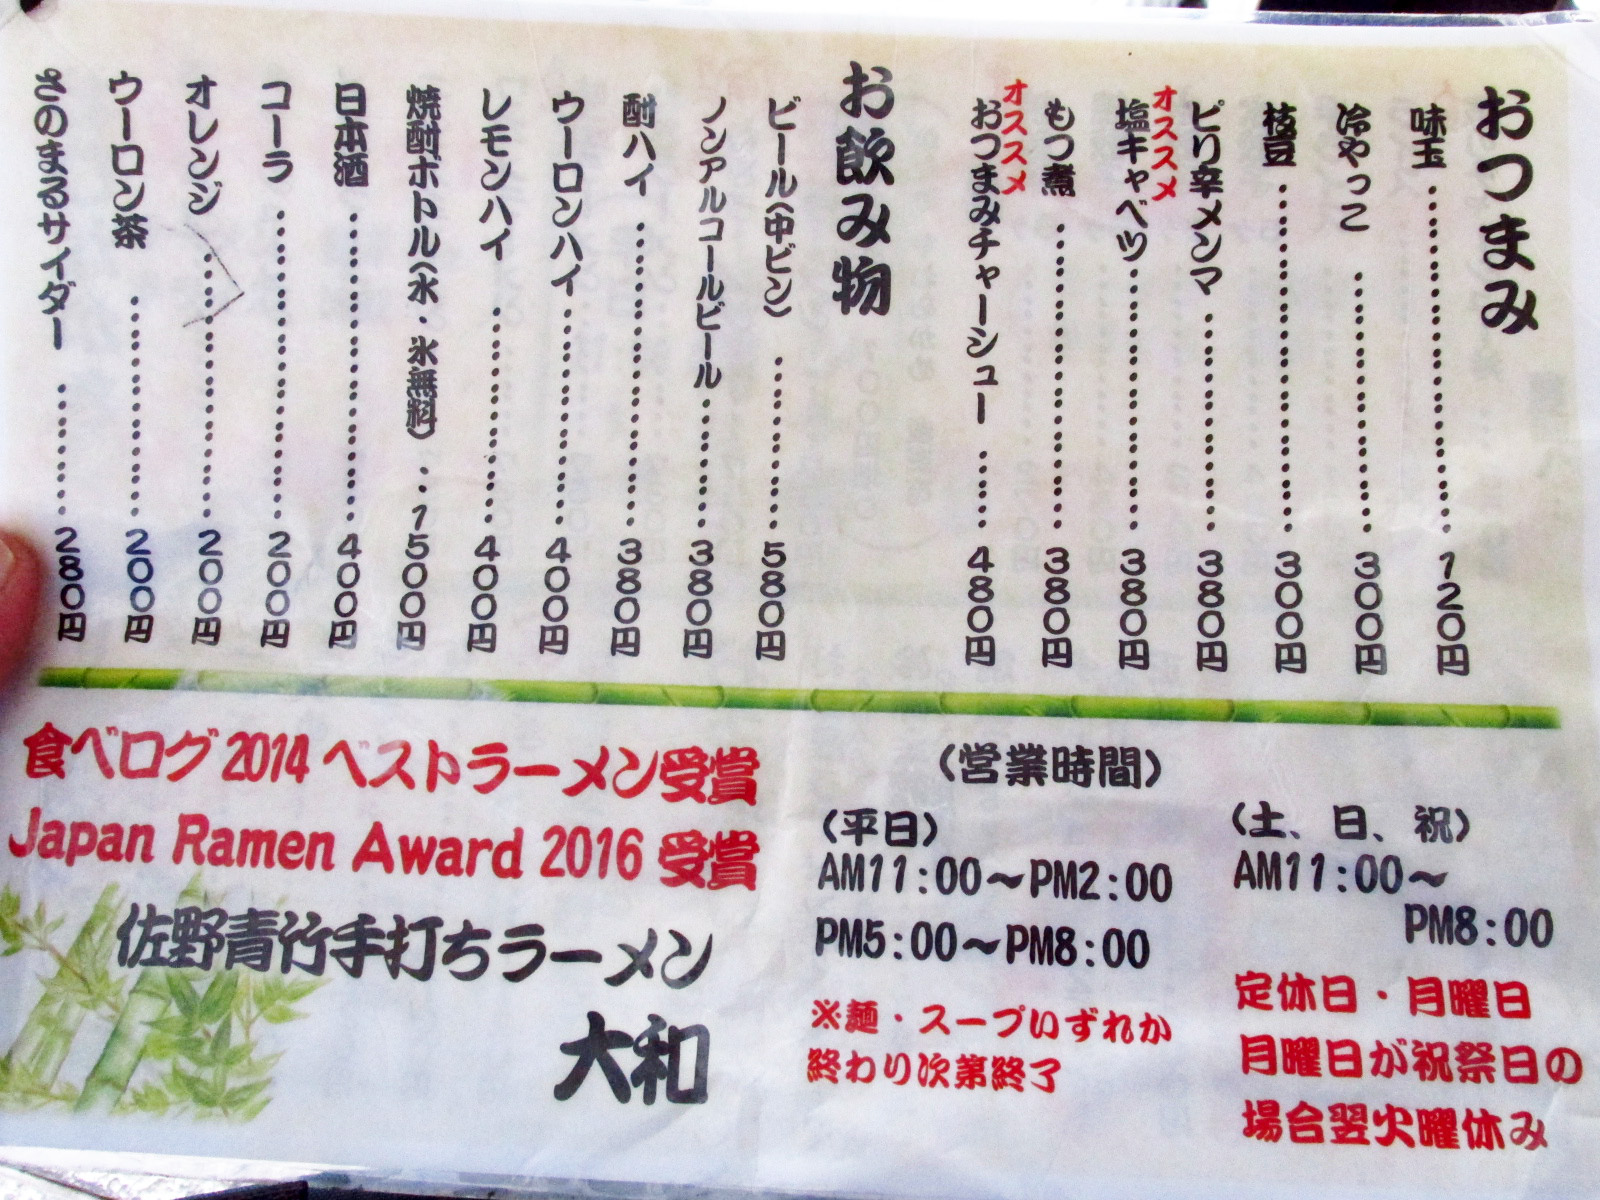 おつまみ
味玉 120円
冷やっこ 300円
枝豆 300円
ピリ辛メンマ 380円
オススメ
塩キャベツ 380円
もつ煮 380円
オススメ
おつまみチャーシュー 480円
お飲み物
ビール(中ビン) 580円
ノンアルコールビール 380円
酎ハイ 380円
ウーロンハイ 400円
レモンハイ 400円
焼酎ボトル(水・氷無料) 1500円
日本酒 400円
コーラ 200円
オレンジ 200円
ウーロン茶 200円
さのまるサイダー 280円
食べログ2014ベストラーメン受賞
Japan Ramen Award 2016 受賞
佐野青竹手打ちラーメン
大和
(営業時間)
(平日)
AM11:00～PM2:00
PM5:00～PM8:00
※麺・スープいずれか
終わり次第終了
(土、日、祝)
AM11:00～
PM8:00
定休日・月曜日
月曜日が祝祭日の
場合翌火曜休み